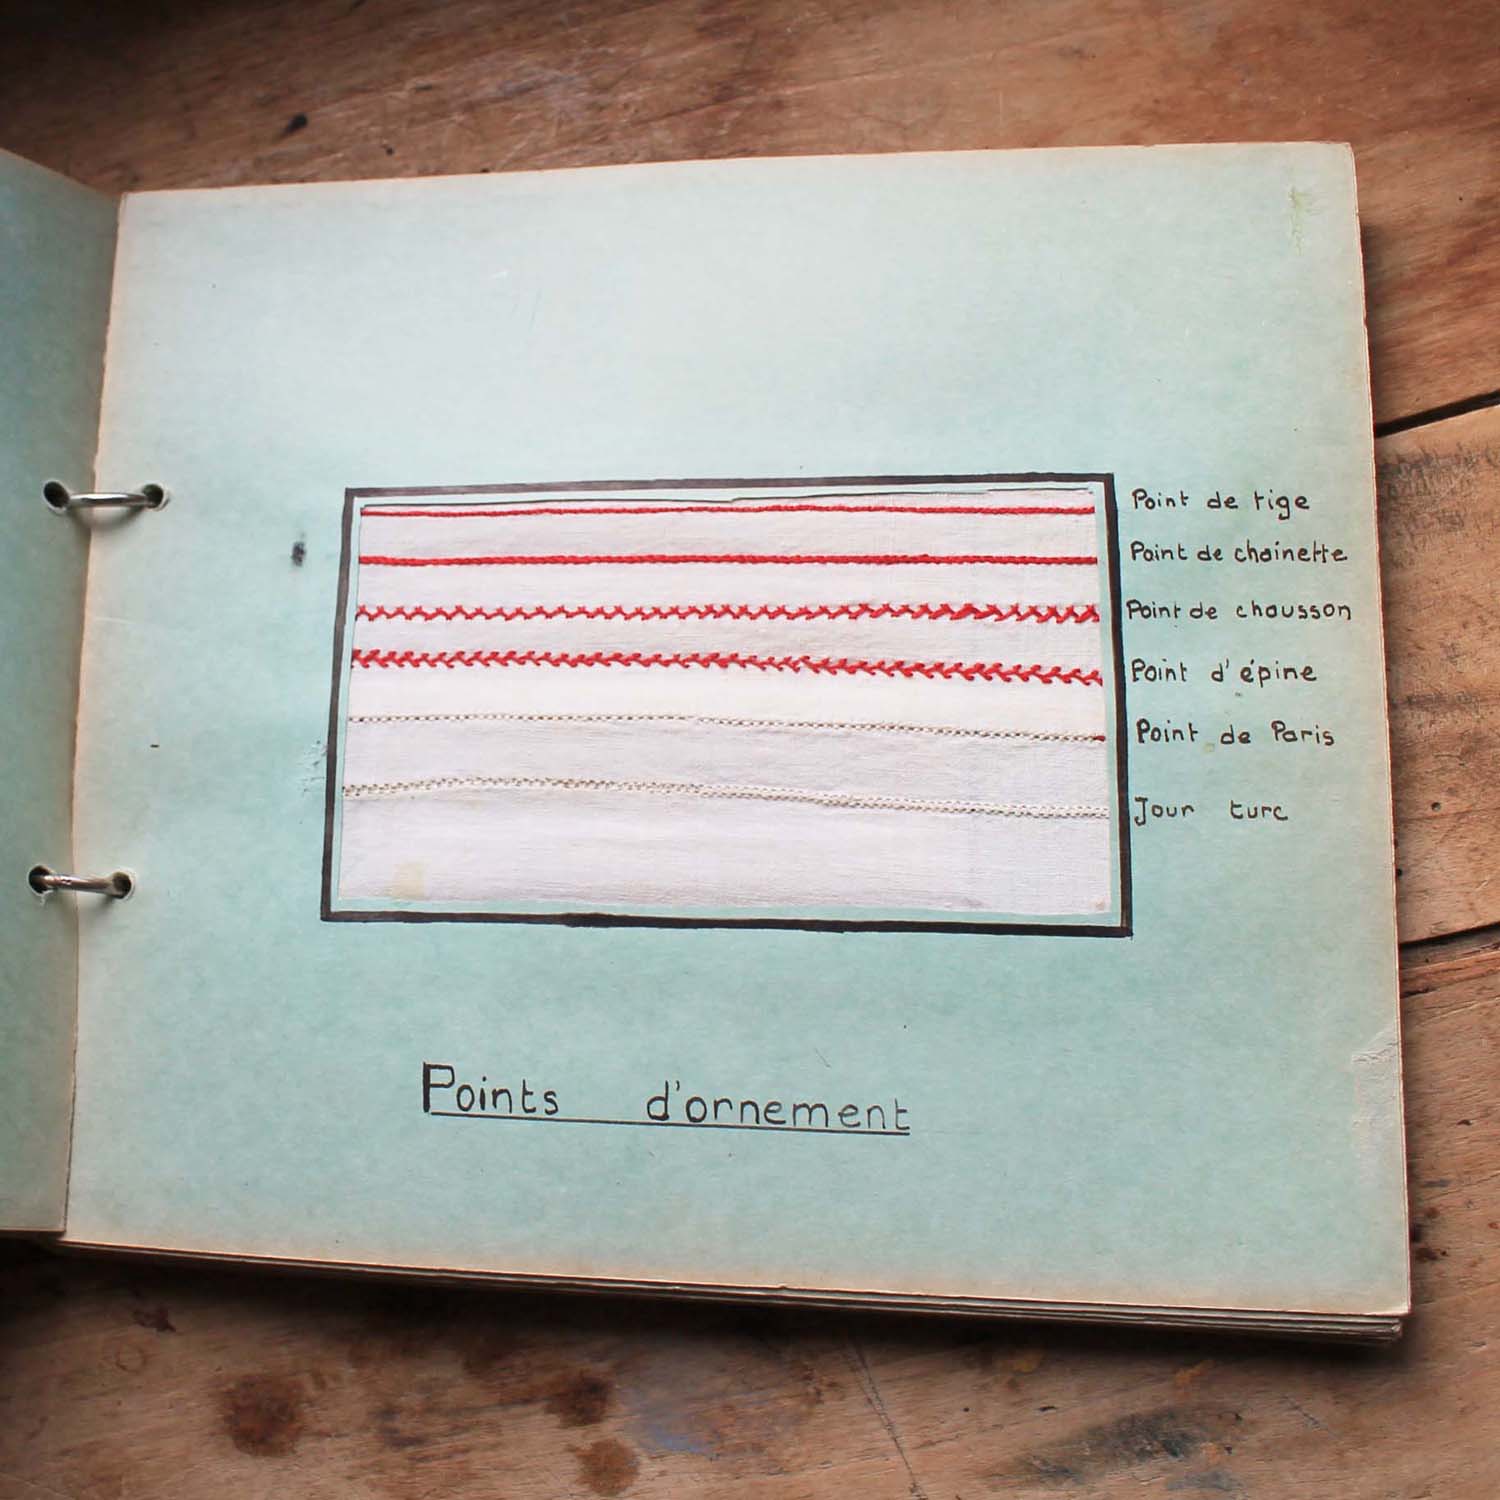 Point de tige
Point de chaînette
Point de chausson
Point d'épine
Point de Paris
Jour turc
Points d'ornement